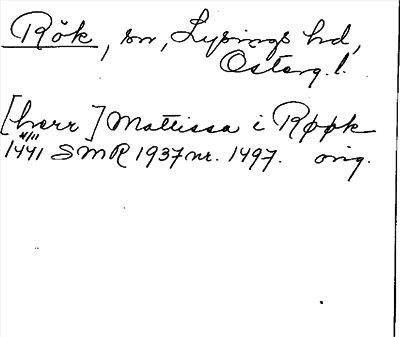 Rök, sn, Lysings hd,
Österg. l.
[herr] Mattissa i Røøk
4/11
1441 SMR 1937 nr. 1497. orig.